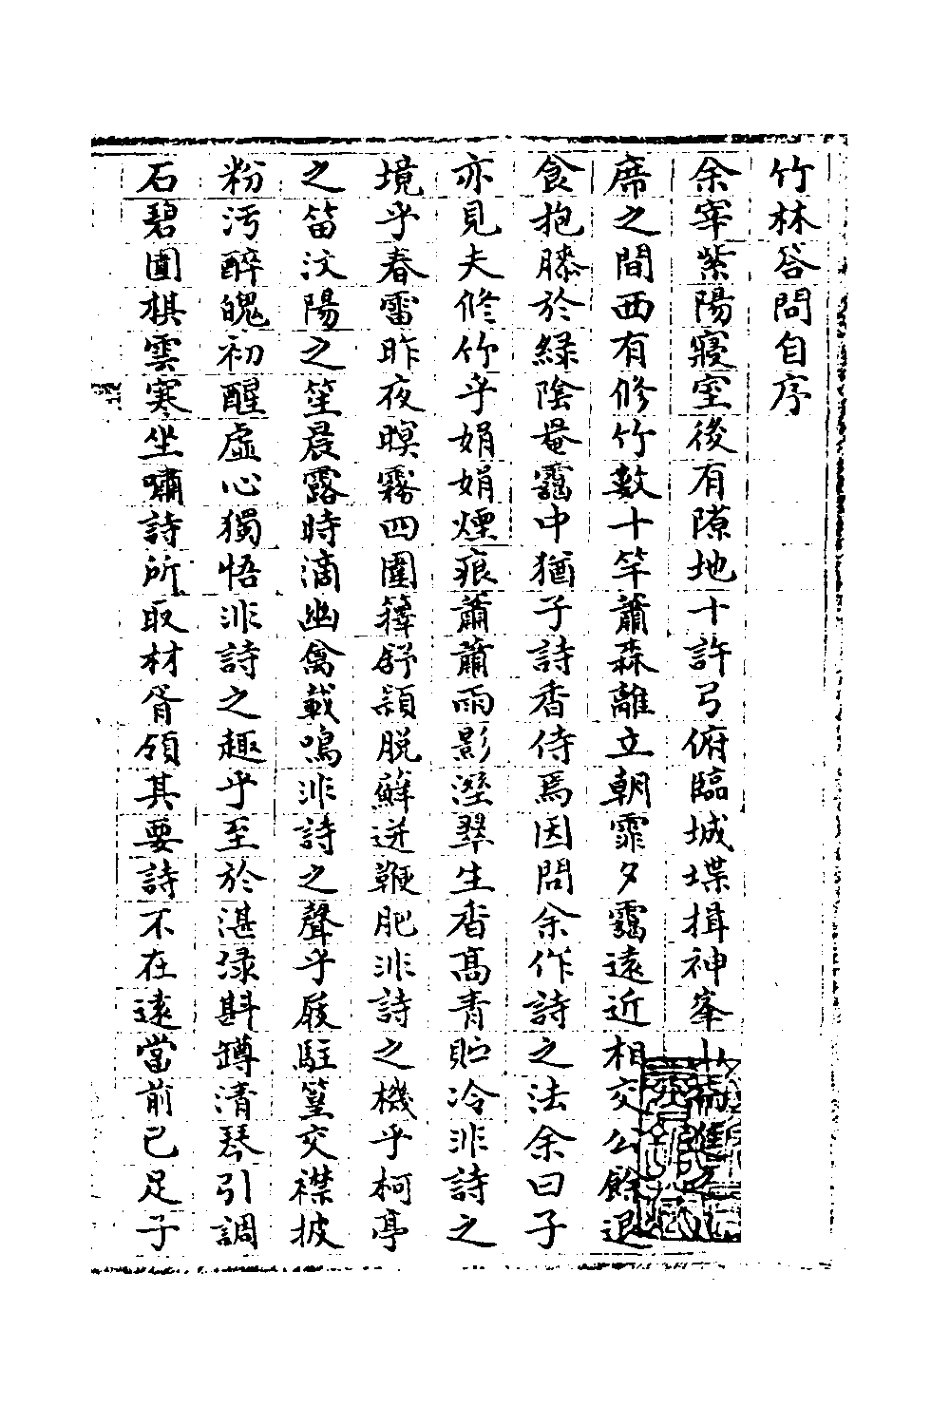 竹林答問自序
余宰紫陽寢室後有隙地十許弓俯臨城堞揖神峯而進之几
席之間西有修竹數十竿蕭森離立朝霏夕靄遠近相交公餘退
食抱膝於綠陰菴靄中猶子詩香侍焉因問余作詩之法余曰子
亦見夫修竹乎娟娟煙痕蕭蕭雨影溼翠生香高青貯冷非詩之
境乎春雷昨夜暝霧四圍籜舒穎脫鮮迸鞭肥非詩之機乎柯亭
之笛汶陽之笙晨露時滴幽禽載鳴非詩之聲乎屐駐篁交襟披
粉污醉魄初醒虛心獨悟非詩之趣乎至於湛淥斟罇清琴引調
石碧圍棋雲寒坐嘯詩所取材胥領其要詩不在遠當前已足子